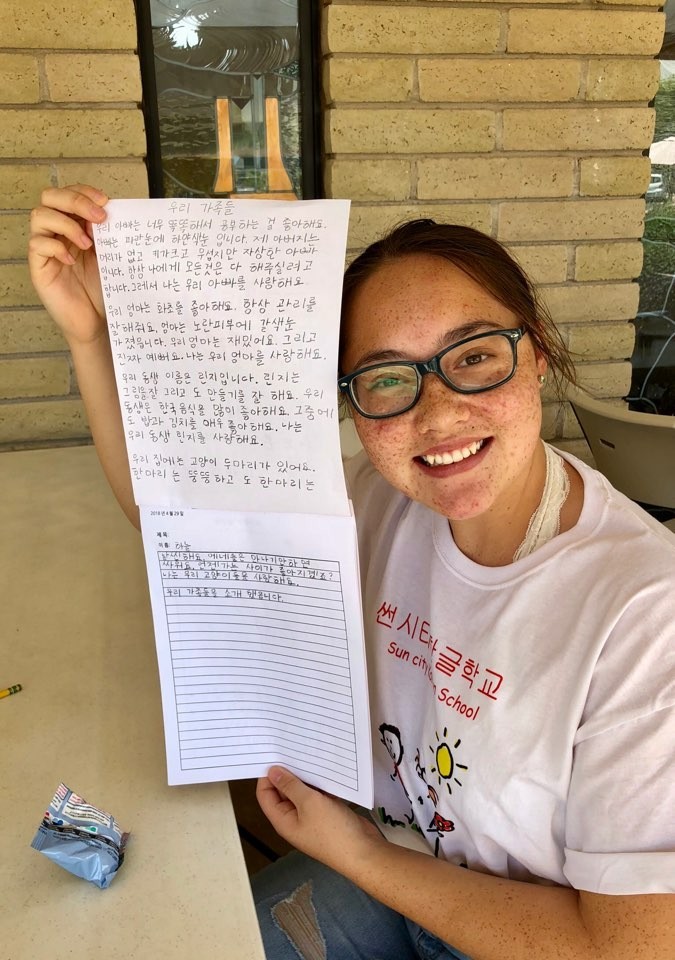 우리 가족들
우리 아빠는 너무 똑똑해서 공부하는 걸 좋아해요.
아빠는 파란눈에 하얀색눈 입니다. 제 아버지는
머리가 없고 키가크고 무섭지만 자상한 아빠
입니다. 항상 나에게 모든것은 다 해주실려고
합니다. 그래서 나는 우리 아빠를 사랑해요.
우리 엄마는 화초를 좋아해요. 항상 관리를
잘해줘요. 엄마는 노란피부에 갈색눈
가졌읍니다. 우리 엄마는 재밌어요. 그리고
진짜 예뻐요. 나는 우리 엄마를 사랑해요.
우리 동생 이름은 린지입니다. 린지는
그림을잘 그리고 또 만들기를 잘 해요. 우리
동생은 한국음식을 많이 좋아해요. 그중에
도 밥과 김치를 매우 좋아해요. 나는
우리 동생 린지를 사랑해요.
우리 집에는 고양이 두마리가 있어요.
한마리 는 뚱뚱하고 또 한마리는
2018년 4월 29일
제목:
이름: 하늘
날씬해요. 에네들은 만나기만하면
싸워요. 언제가는 사이가 좋아지겠죠?
나는 우리 고양이들을 사랑해요.
우리 가족들을 소개 했읍니다.
썬 시티 글학교
Sun city School